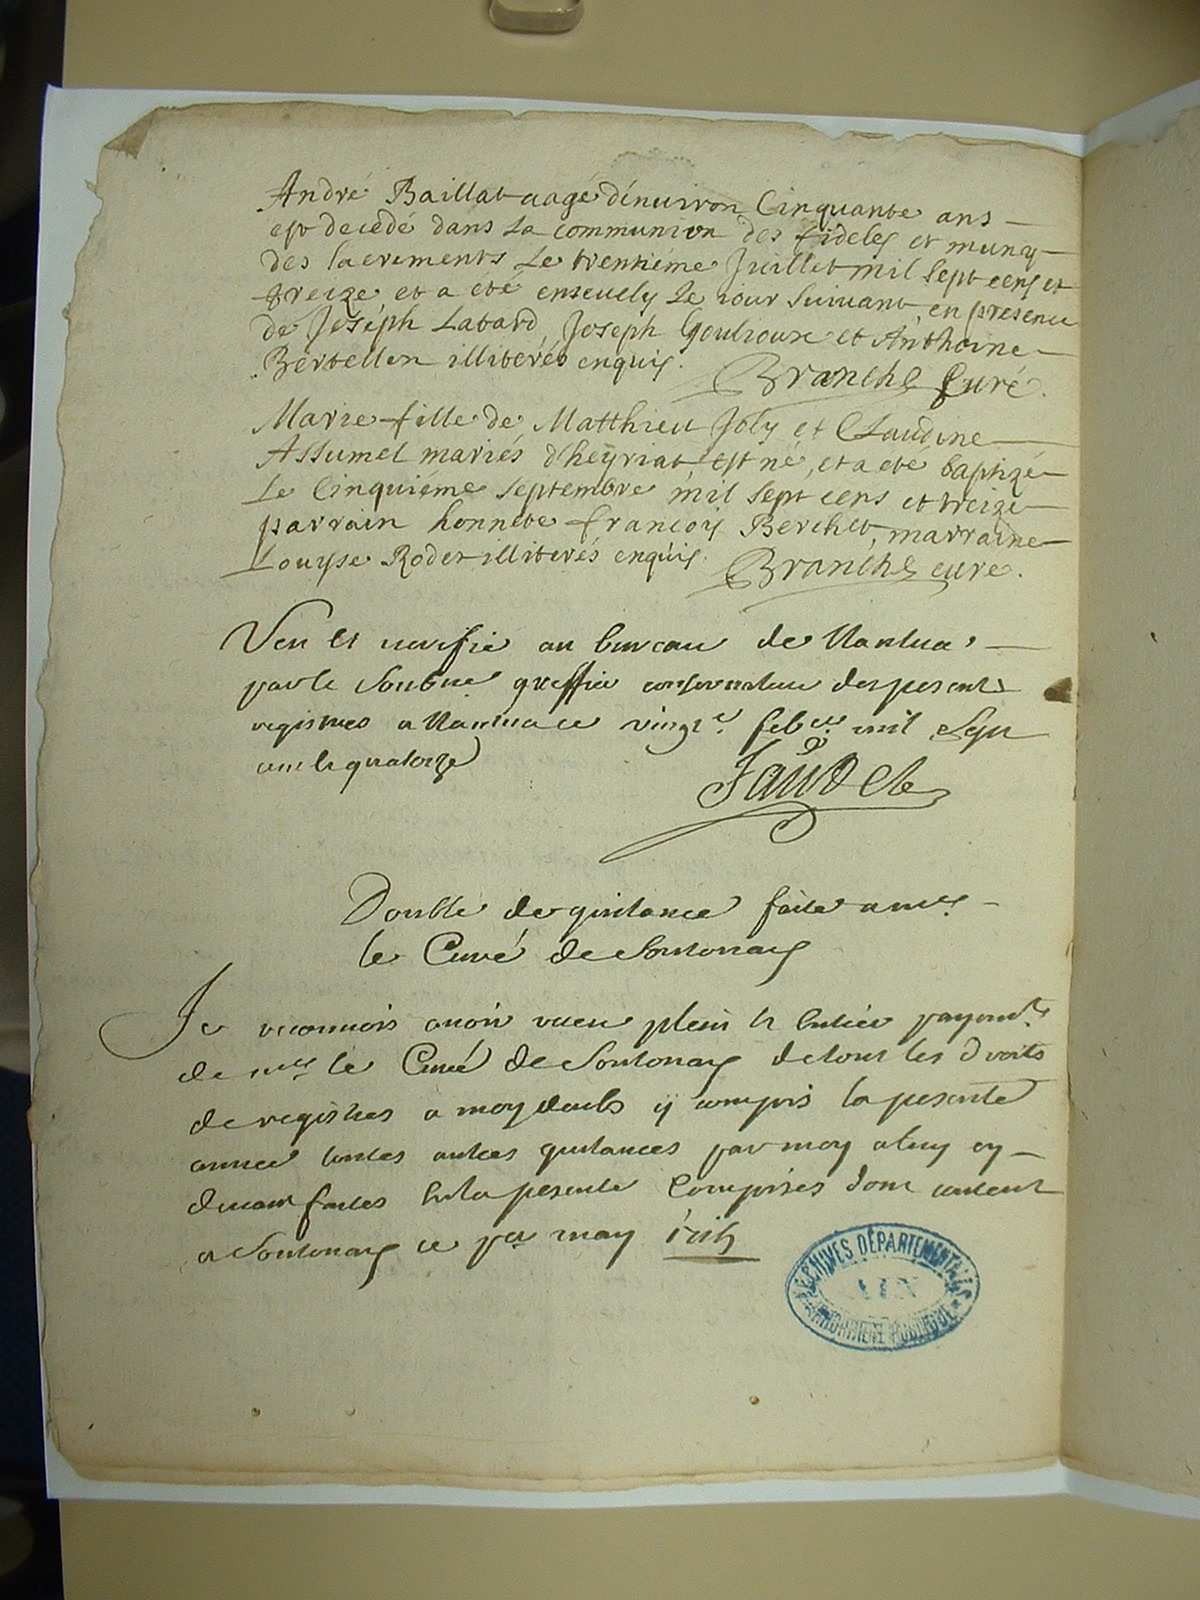 André Baillat aagé d'enuiron Cinquante ans
est decedé dans La communion des fideles et muny
des sacrements Le trentieme Juillet mil sept cens et
treize et a eté enseuely Le iour suiuant, en presence
de Joseph Labard, Joseph Goulioux et Anthoine
Bertellon illiterés enquis.
Branche Curé.
Marie fille de Matthieu Joly et Claudine
Assumel mariés d'heyriat, est né, et a eté baptizé
Le Cinquieme septembre mil sept cens et treize
parrain honnete francois Berchet, marraine
Louyse Roder illiterés enquis.
Branche curé.
Veu et verifié au bureau de Nantua
par le Soubne greffier conseruateur des presents
registres a Nantua ce vingt feber mil sept
cent quatorze
Double de quitance faite a mre
le Curé de Sontonax
Je reconnois auoir receu plein et entier payemt
de mre le Curé de Sontonax de tout les droits
de registres a moy deubs y compris la presente
année toutes autres quitances par moy a luy cy
deuant faites et la presente Comprises dont content
a Sontonax ce per may
ARCHIVES DÉPARTEMENTALES
AIN